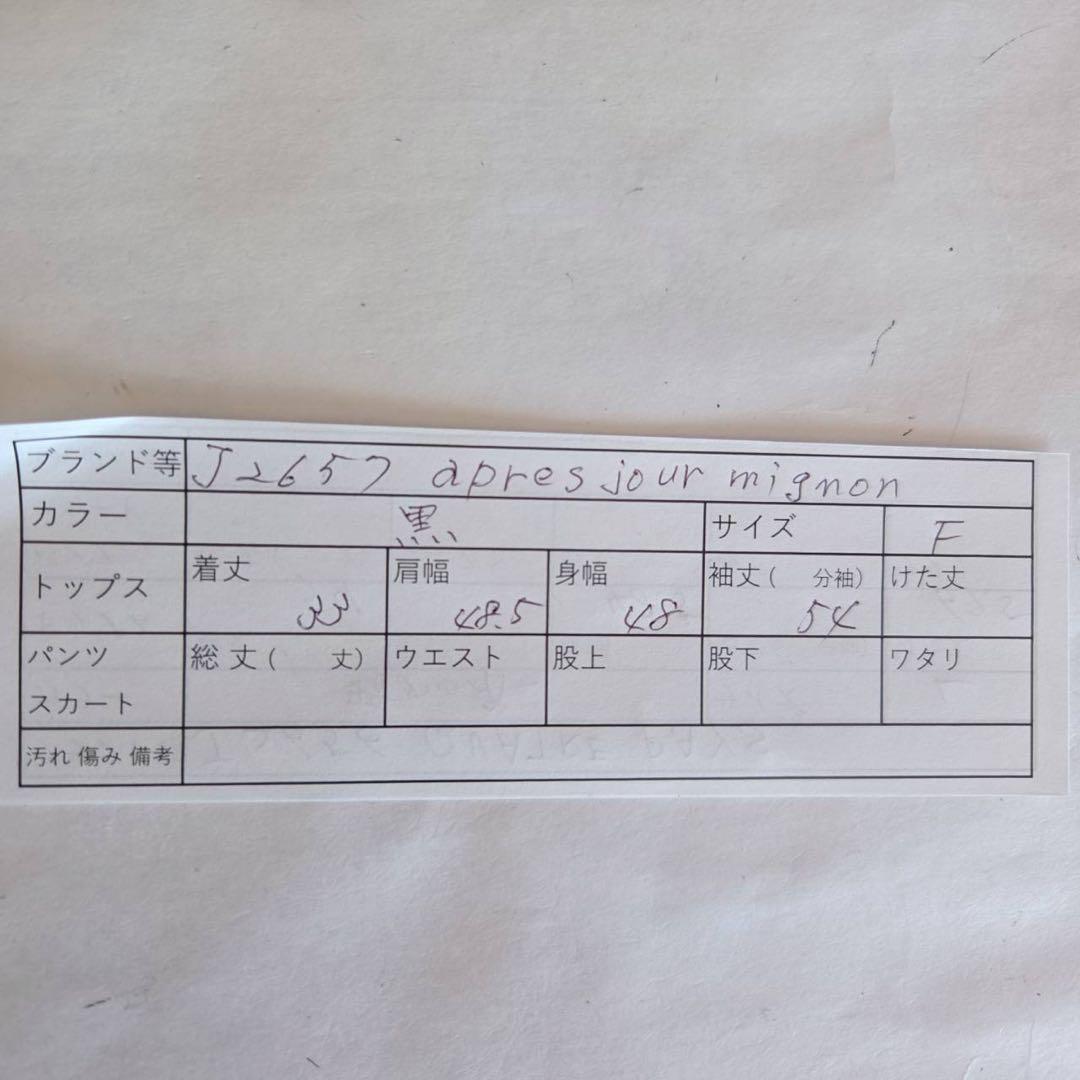 ブランド等 J2657 apres jour mignon
カラー 黒 サイズ F
トップス 着丈 33 肩幅 48.5 身幅 48 袖丈( 分袖) 54 けた丈
パンツ スカート 総丈( 丈) ウエスト 股上 股下 ワタリ
汚れ 傷み 備考